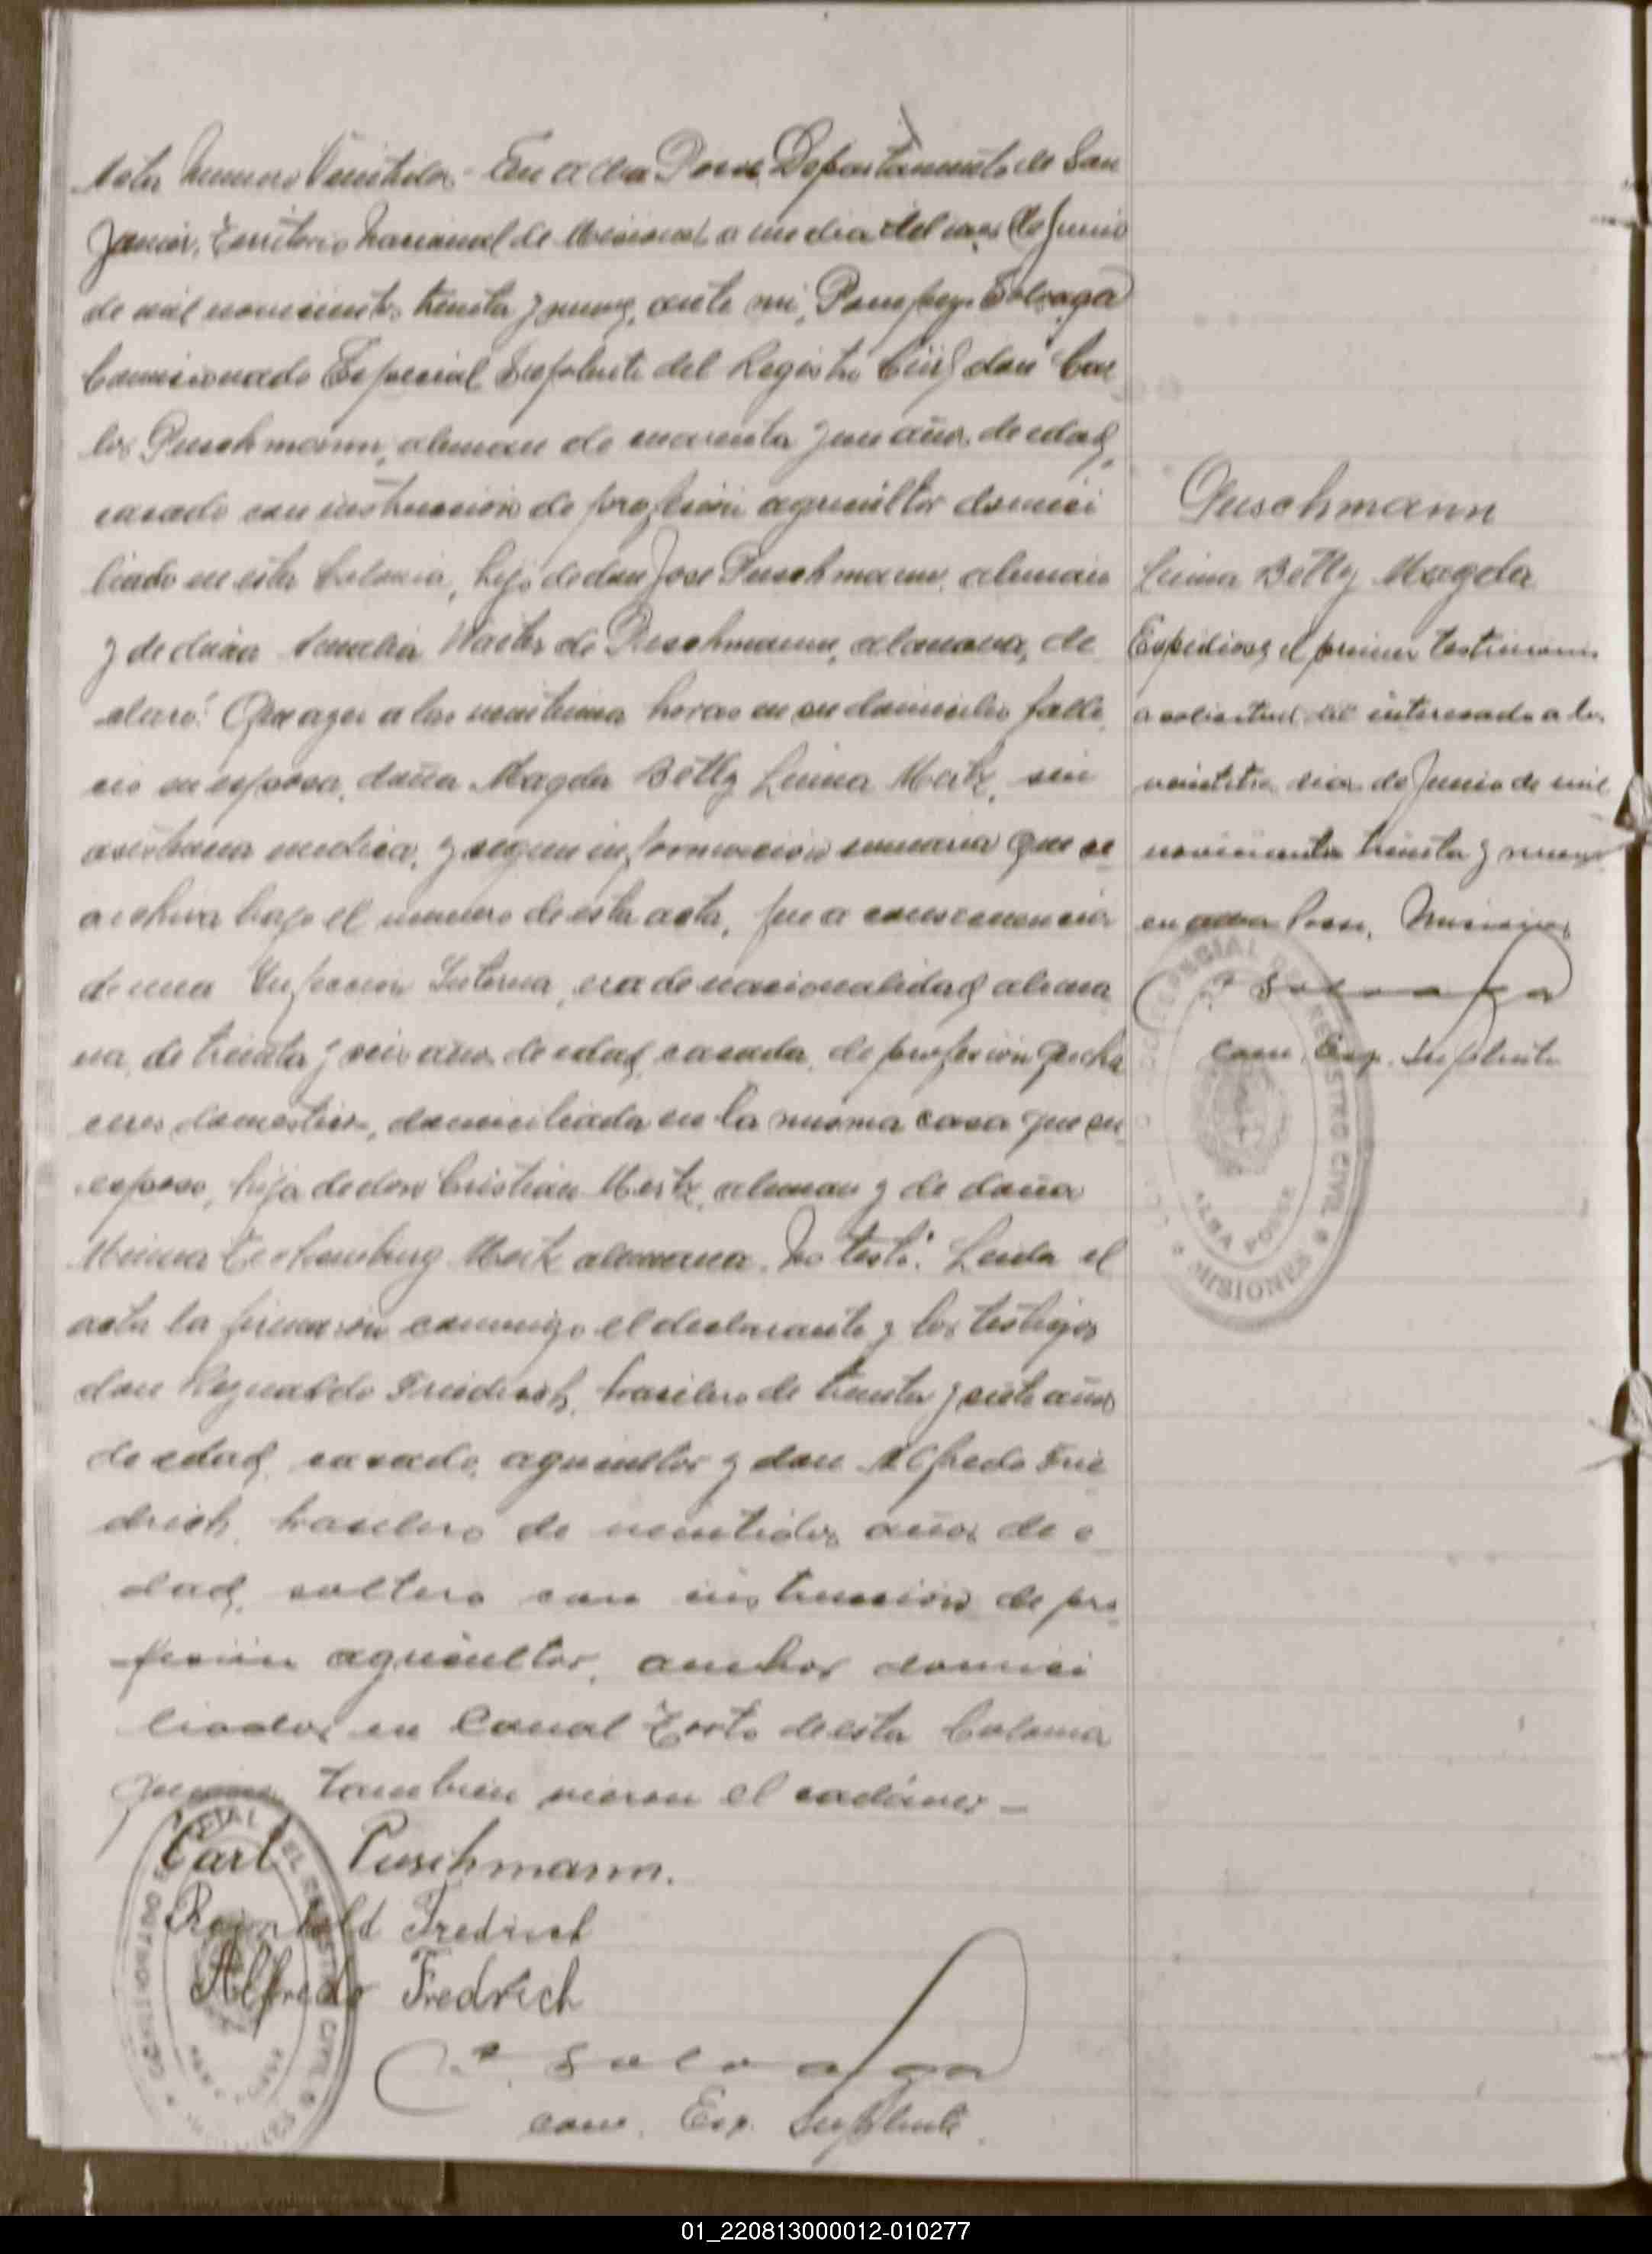 Acta Numero Veintidos - En Alba Posse Departamento de San
Javier, Territorio Nacional de Misiones, a un dia del mes de Junio
de mil novecientos treinta y nueve, ante mi, Pompeyo Solvaga
Comisionado Especial Suplente del Registro Civil, don Car
los Puschmann, aleman de cuarenta y un años de edad,
casado con instruccion de profesion agricultor domici
liado en esta Colonia, hijo de don Jose Puschmann, aleman
y de doña de Puschmann, alemana, de
claró: Que ayer a las veintiuna horas en su domicilio falle
cio su esposa, doña Magda Betty Luina Mertz, sin
asistencia medica, y segun informacion sumaria que se
archiva bajo el numero de esta acta, fue a consecuencia
de una Interna, era de nacionalidad alema
na, de treinta y seis años de edad, casada, de profesion queha
ceres domesticos, domiciliada en la misma casa que su
esposo, hija de don Cristian Mertz, aleman y de doña
Minna Mertz alemana. No testó. Leida el
acta la firmaron conmigo el declarante y los testigos
don Reynaldo Friedrich, brasilero de treinta y siete años
de edad, casado, agricultor y don Alfredo Frie
drich, brasilero de veintidos años de e
dad, soltero con instruccion de pro
fesion agricultor, ambos domici
liados en Canal Torto de esta Colonia
quienes tambien vieron el cadáver -
Carl Puschmann.
Reinhold Fredrich
Alfredo Fredrich
P. Solvaga
Com. Esp. Suplente
Puschmann
Luina Betty Magda
Expidiose el primer testimonio
a solicitud del interesado a los
veintitres dias de Junio de mil
novecientos treinta y nueve
en Alba Posse, Misiones
P. Solvaga
Com. Esp. Suplente
ESPECIAL DEL REGISTRO CIVIL
ALBA POSSE
MISIONES
01_220813000012-010277